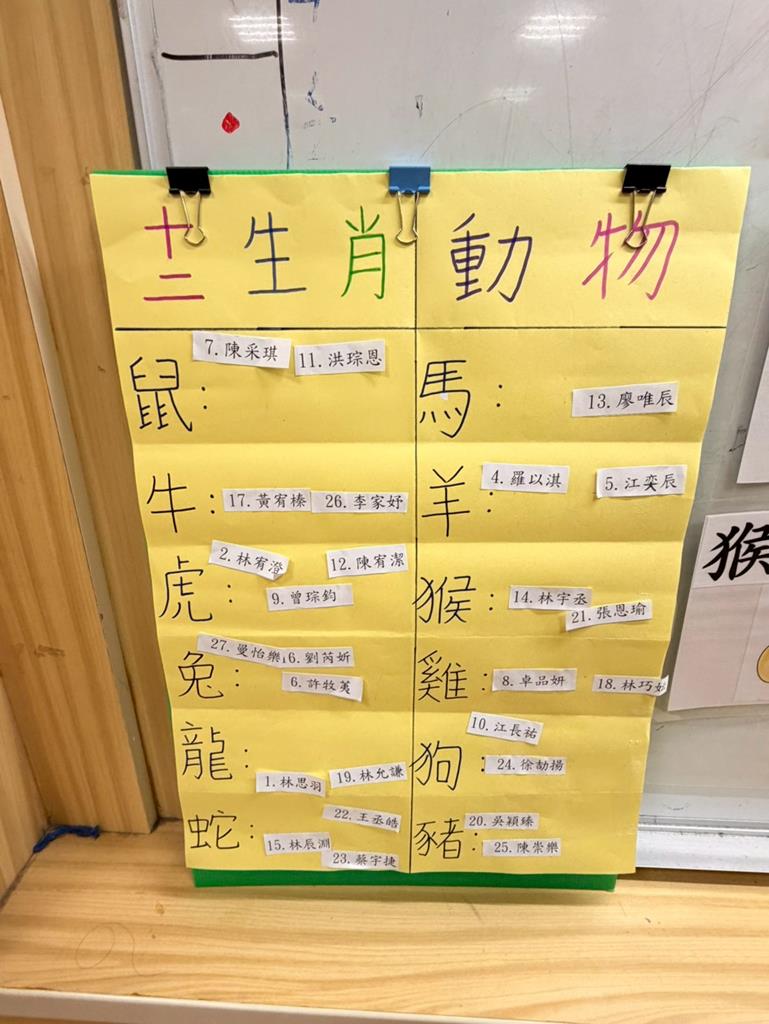 十二生肖動物
鼠: 7.陳采琪 11.洪琮恩
牛: 17.黃宥榛 26.李家妤
虎: 2.林宥澄 12.陳宥潔
9.曾琮鈞
兔: 27.曼怡樂 6.劉芮妡
6.許牧荑
龍: 1.林思羽 19.林允謙
蛇: 22.王丞皓
15.林辰淵
23.蔡宇捷
馬: 13.廖唯辰
羊: 4.羅以淇 5.江奕辰
猴: 14.林宇丞
21.張恩瑜
雞: 8.卓品妍 18.林巧
狗: 10.江長祐
24.徐劼揚
豬: 20.吳穎臻
25.陳崇樂
猴